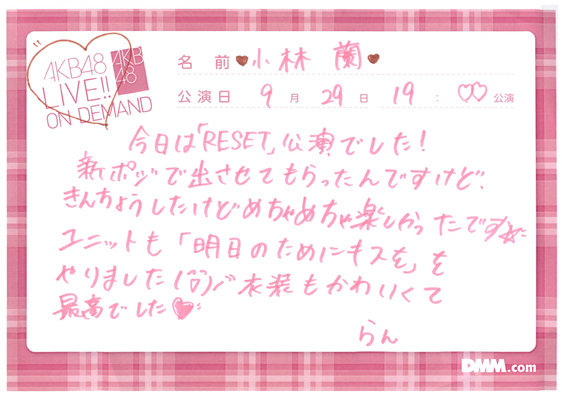 AKB48
LIVE!!
ON DEMAND
AKB
48
名前 ♥小林 蘭♥
公演日 9月29日 19:♡♡公演
今日は「RESET」公演でした!
新ポジで出させてもらったんですけど、
きんちょうしたけどめちゃめちゃ楽しかったです☆
ユニットも「明日のためにキスを」を
やりました(^o^)/衣装もかわいくて
最高でした♡
らん
DMM.com